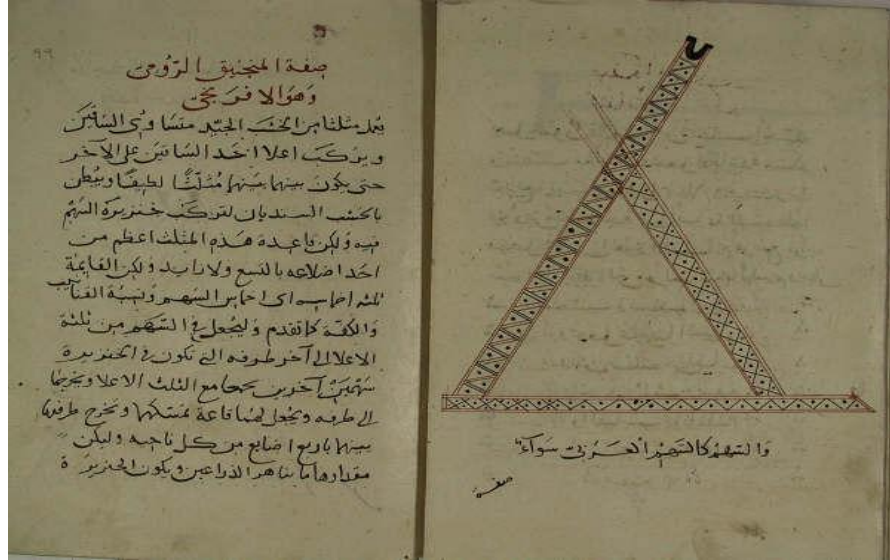 والسهم كالسهم العربي سواء
صفة
٩٩
صفة المنجنيق الرومي
وهو الافرنجي
يعمل مثلثا من الخشب الجيد متساوى الساقين
ويركب اعلا احد الساقين على الآخر
حتى يكون بينهما بينهما مثلثا لطيفا ويبطن
بالخشب السنديان لتركب خنزيرة السهم
فيه ولكن قاعدة هذه المثلث اعظم من
احد اضلاعه بالتسع ولا تزايد ولكن القايمة
ثلثه اخماسه اى اخماس السهم ونسبة
والكفة كما تقدم وليجعل فى السهم من ثلثه
الاعلا الى آخر طرفه التى تكون فى الخنزيرة
سهمين آخرين يجمعا مع الثلث الاعلا ويخرجا
الى طرفه ويجعل لهما قاعة تمسكها وتخرج طرفها
بينهما باربع اصابع من كل ناحيه وليكن
مقدارها ما يناهز الذراعين ويكون الخنزيرة